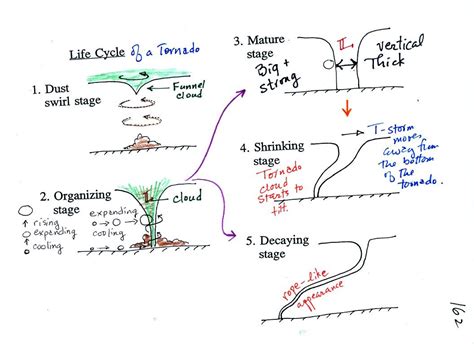 Life Cycle of a Tornado
1. Dust
swirl stage
Funnel
cloud
2. Organizing
stage
cloud
L
rising
expending
cooling
expending
cooling
3. Mature
stage
Big +
strong
L
vertical
Thick
4. Shrinking
stage
Tornado
cloud
starts to
tilt.
T-storm
moves
away from
the bottom
of the
tornado.
5. Decaying
stage
rope-like
appearance
162